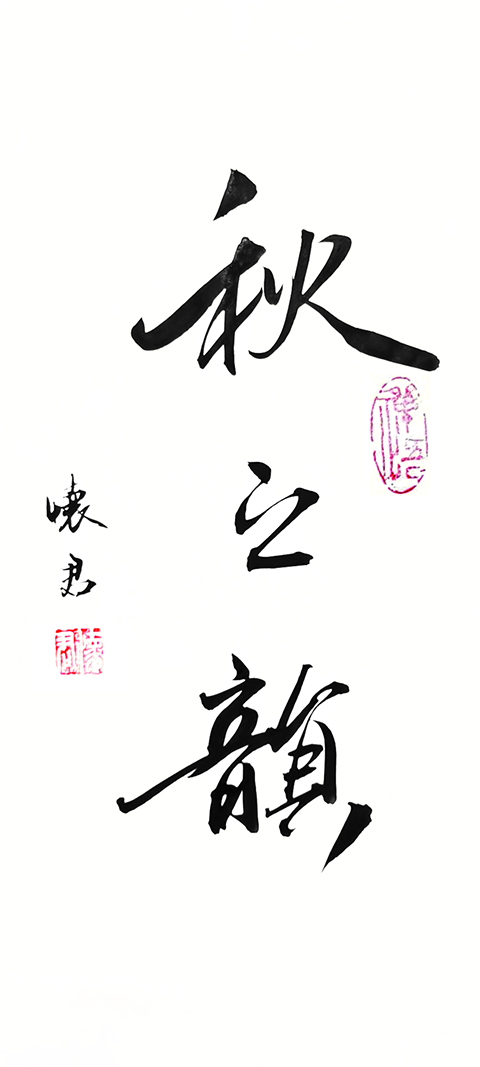 秋之韻
懷君